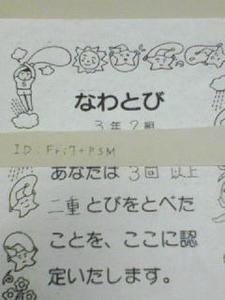 なわとび
3年2組
ID:Fri7+PSM
あなたは3回以上
二重とびをとべた
ことを、ここに認
定いたします。